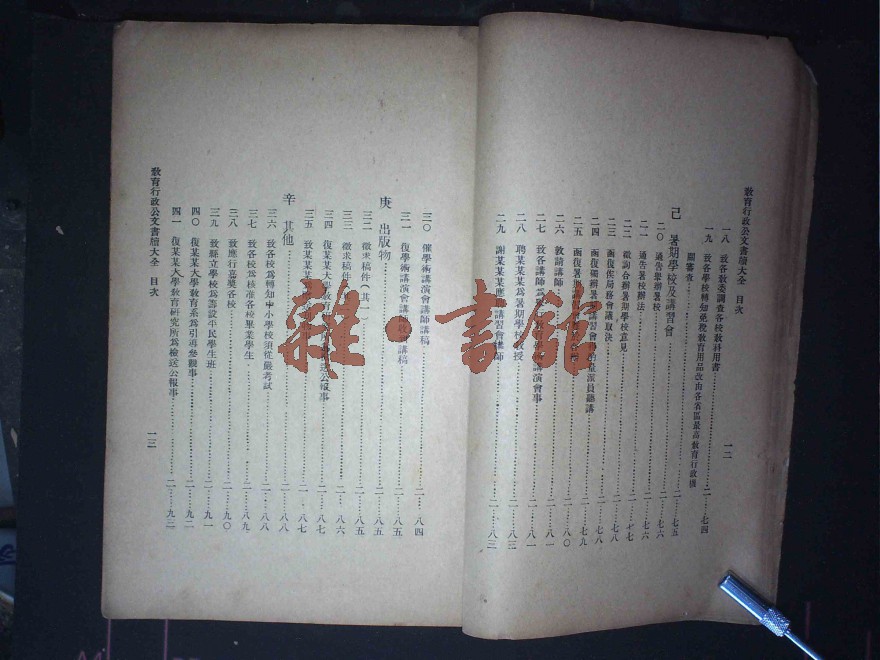 教育行政公文書牘大全 目次
一二
一八 致各教委調查各校教科用書
一九 致各學校轉知免稅教育用品改由各省區最高教育行政機
關審查 二…七四
己 暑期學校及講習會 二…七五
二〇 通告舉辦暑校 二…七六
二一 通告暑校辦法 二…七六
二二 徵詢合辦暑期學校意見 二…七七
二三 函復俟局務會議取決 二…七八
二四 函復獨辦暑期講習會 派員聽講 二…七八
二五 函復暑 二…七九
二六 敦請講師 二…八〇
二七 致各講師為 學術講演會事 二…八一
二八 聘某某某為暑期學校教授 二…八三
二九 謝某某某應 講習會講師 二…八三
三〇 催學術講演會講師講稿 二…八四
三一 復學術講演會講師收 講稿 二…八五
庚 出版物 二…八五
三二 徵求稿件(其一) 二…八五
三三 徵求稿件 二…八六
三四 復某某大學教育 送公報事 二…八七
三五 致某某某 二…八七
辛 其他 二…八八
三六 致各校為轉知中小學校須從嚴考試 二…八八
三七 致各校為核准各校畢業學生 二…八九
三八 致應行嘉獎各校 二…九〇
三九 致縣立學校為籌設平民學生班 二…九一
四〇 復某某大學教育系為引導參觀事 二…九二
四一 復某某大學教育研究所為檢送公報事 二…九三
教育行政公文書牘大全 目次
一三
雜·書館